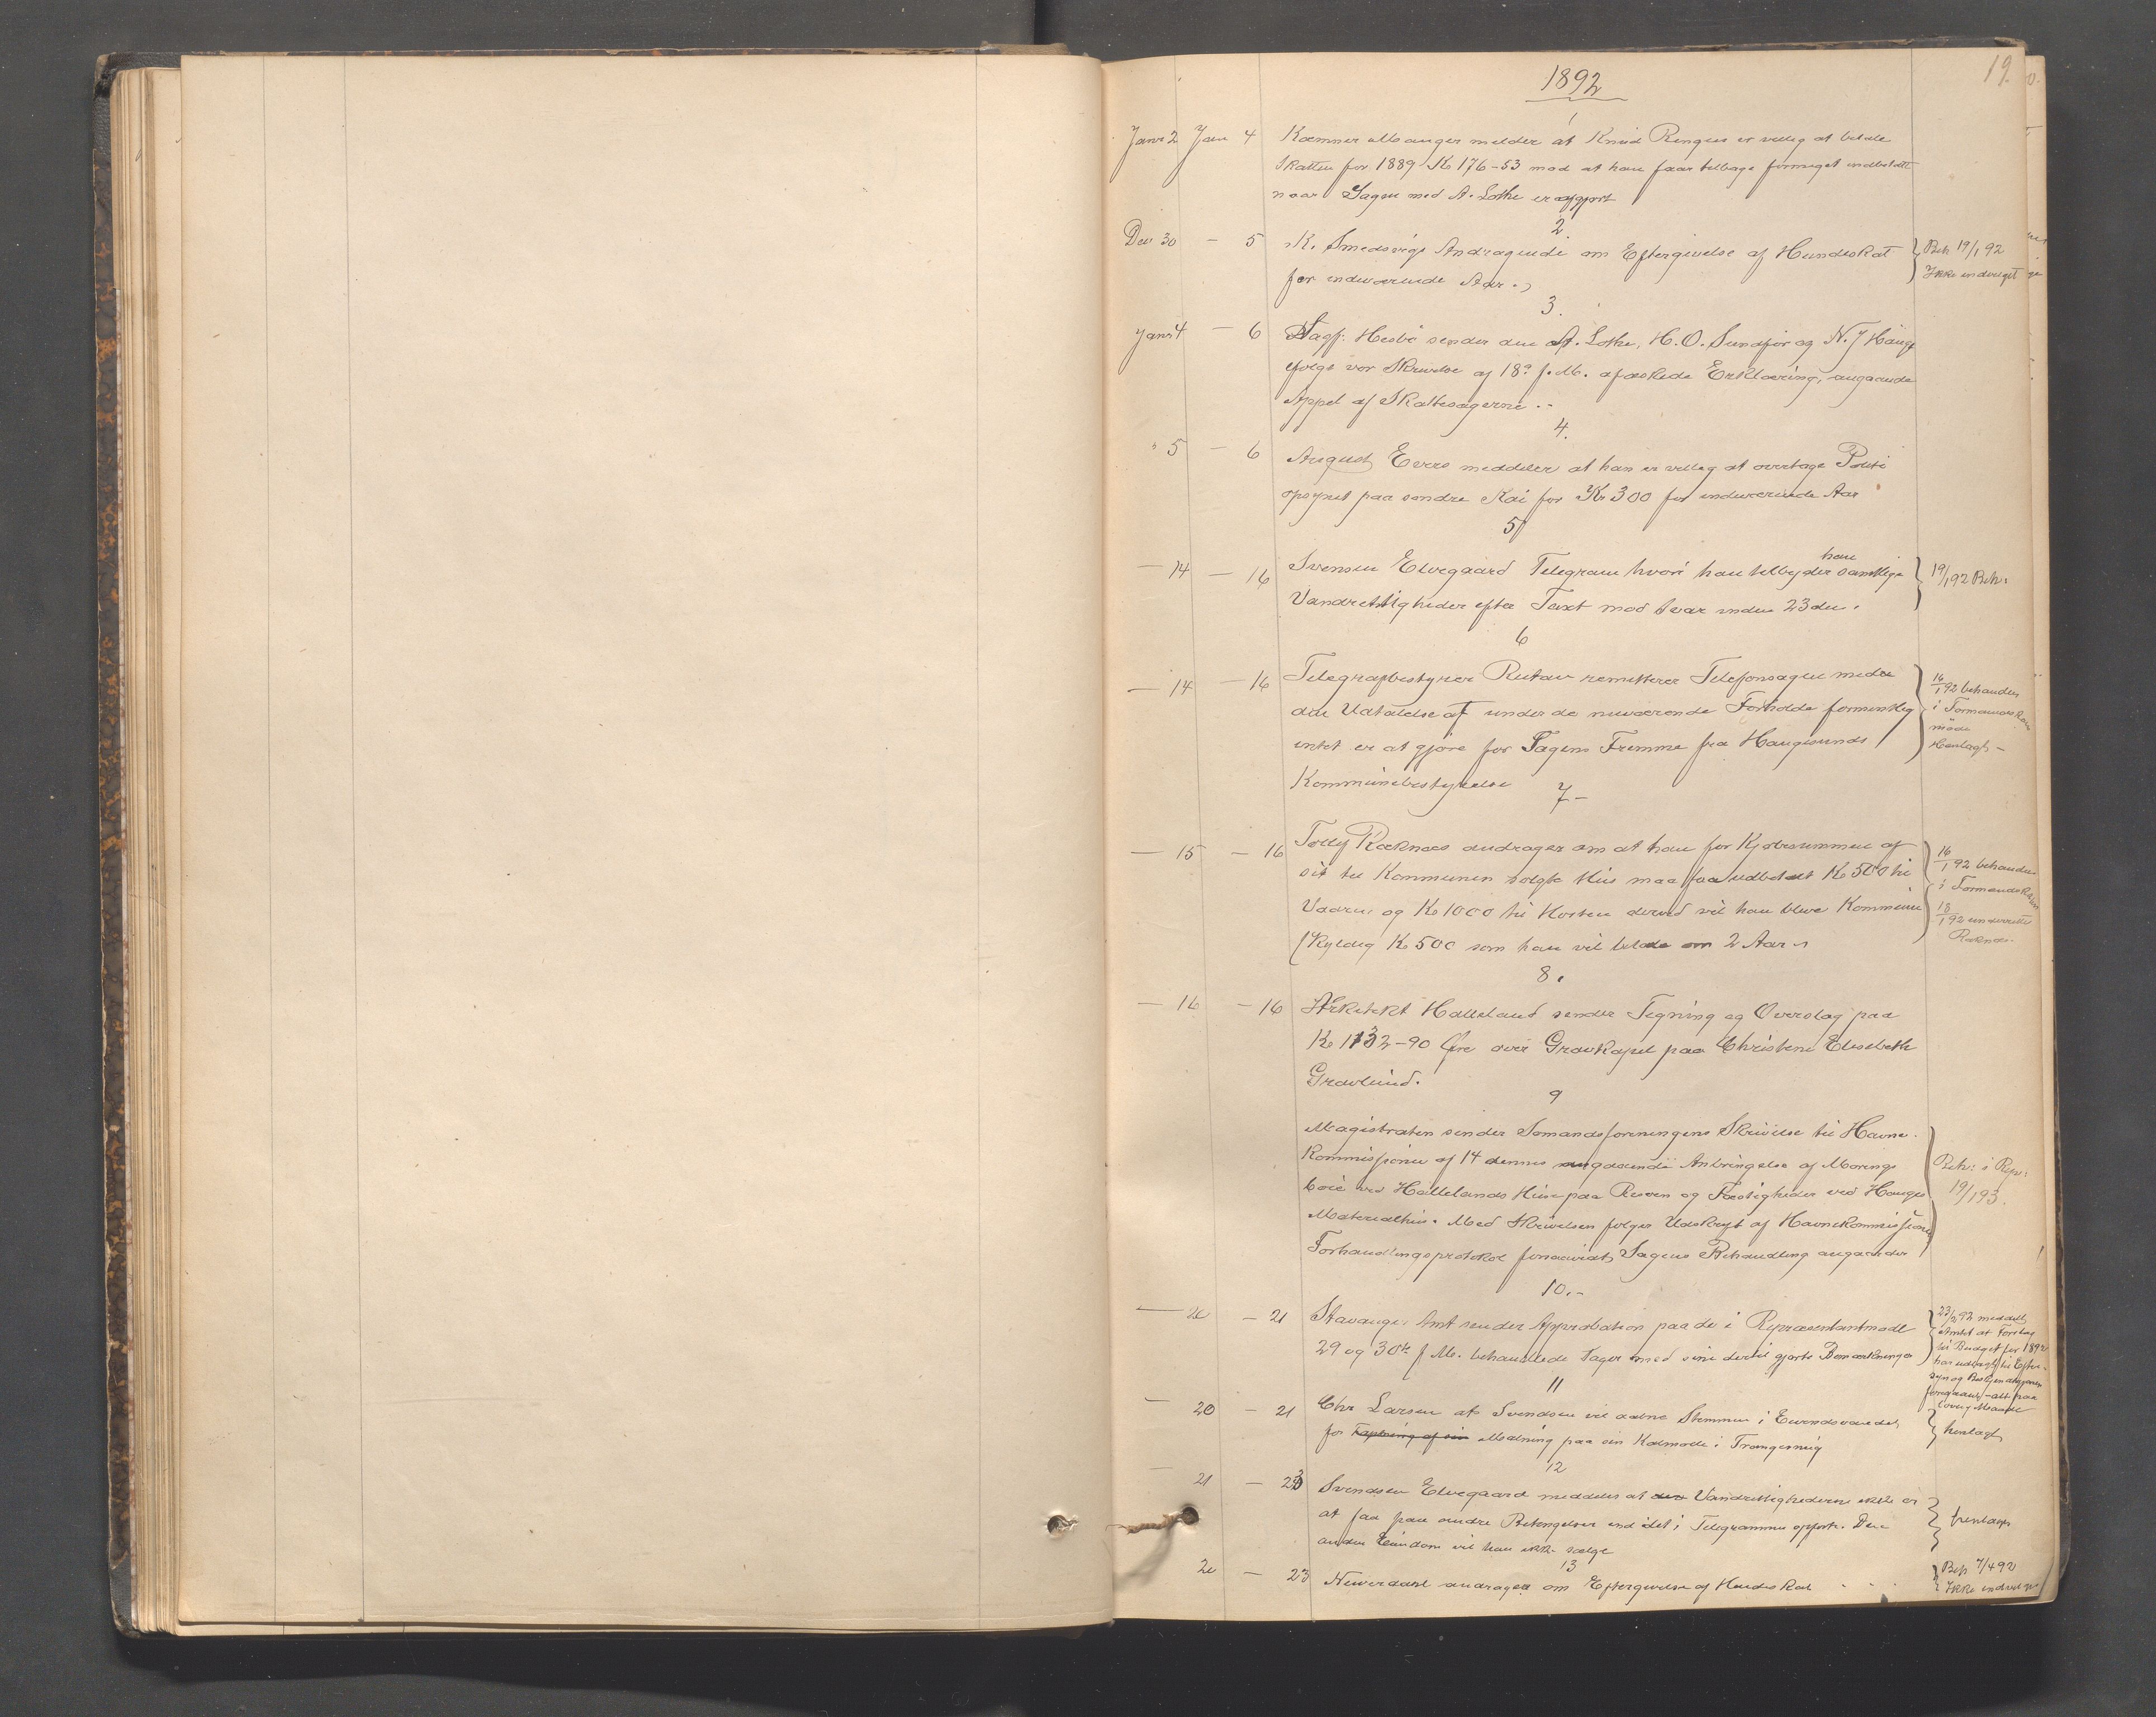 19.
1892
1
Janr 2 Jan 4 Kæmner Mauanger melder at Knud Ringen er villig at betale
Skatten for 1889 Kr 176-53 mod at han faar tilbage formeget indbetalt
naar Sagen med A. Lothe er afgjort
2.
Dec 30 - 5 K. Smedsvigs Andragende om Eftergivelse af Hundeskat } Beh 19/1 92
for indeværende Aar. Ikke indvilget
3.
Janr 4 - 6 Sagf: Hesbö sender den af A. Lothe, H. O. Sundfør og N. J Hauge
ifølge vor Skrivelse af 18de f. M. afæskede Erklæring, angaaende
Appel af Skattesagerne .-
4.
" 5 - 6 August Evers meddeler at han er villig at overtage Politi
opsynet paa søndre Kai for Kr 300 for indeværende Aar
5
- 14 - 16 Svensen Elvegaard Telegram hvori han tilbyder han samtlige } 19/1 92 Beh:
Vandrettigheder efter Taxt mod Svar inden 23de.
6
- 14 - 16 Telegrafbestyrer remitterer Telefonsagen med } 16/1 92 behandlet
den Udtalelse at under de nuværende Forholde formentlig i Formandskabs
intet er at gjøre for Sagens Fremme fra Haugesunds møde
Kommunebestyrelse Henlagt -
7-
- 15 - 16 Tolley Røknæs andrager om at han for Kjøbesummen af } 16/1 92 behandlet
sit til Kommunen solgte Hus maa faa udbetalt Kr 500 til i Formandskabet
Vaaren og Kr 1000 til Høsten derved vil han blive Kommunen 18/1 92 underrettet
skyldig Kr 500 som han vil betale om 2 Aar Røknæs.
8.
- 16 - 16 Arkitekt Halleland sender Tegning og Overslag paa
Kr 1132-90 Øre over Gravkapel paa Christine Elisabeth
Gravlund.
9
Magistraten sender Sømandsforeningens Skrivelse til Havne-
kommissionen af 14 dennes angaaende Anbringelse af Morings } Beh: i Repr:
boie ved Hallelands Huse paa Risøen og Fæstigheder ved Hauges 19/1 93.
Materialhus. Med Skrivelsen følger Udskrift af Havnekommissionens
Forhandlingsprotokol Sagens Behandling angaaende
10.-
- 20 - 21 Stavanger Amt sender Approbation paa de i Repræsentantmøde } 23/1 92 meddelt
29 og 30te f M. behandlede Sager med sine dertil gjorte Bemærkninger Amtet at Forslag
til Budget for 1892
har udlagt til Efter-
syn og
foregaaet - alt paa
lovlig Maade
11
- 20 - 21 Chr Larsen at Svendsen vil aabne Stemmen i Eivindsvandet } henlagt
for Tapning af sin Malning paa sin Kolmølle i
12
- 21 - 23 Svendsen Elvegaard meddeles at den Vandrettighederne ikke er } henlagt
at faa paa andre Betingelser end det i Telegrammet opførte. Den
anden Eiendom vil han ikke sælge
13
20 - 23 andrager om Eftergivelse af Hundeskat } Beh 7/4 92
Ikke indvilget